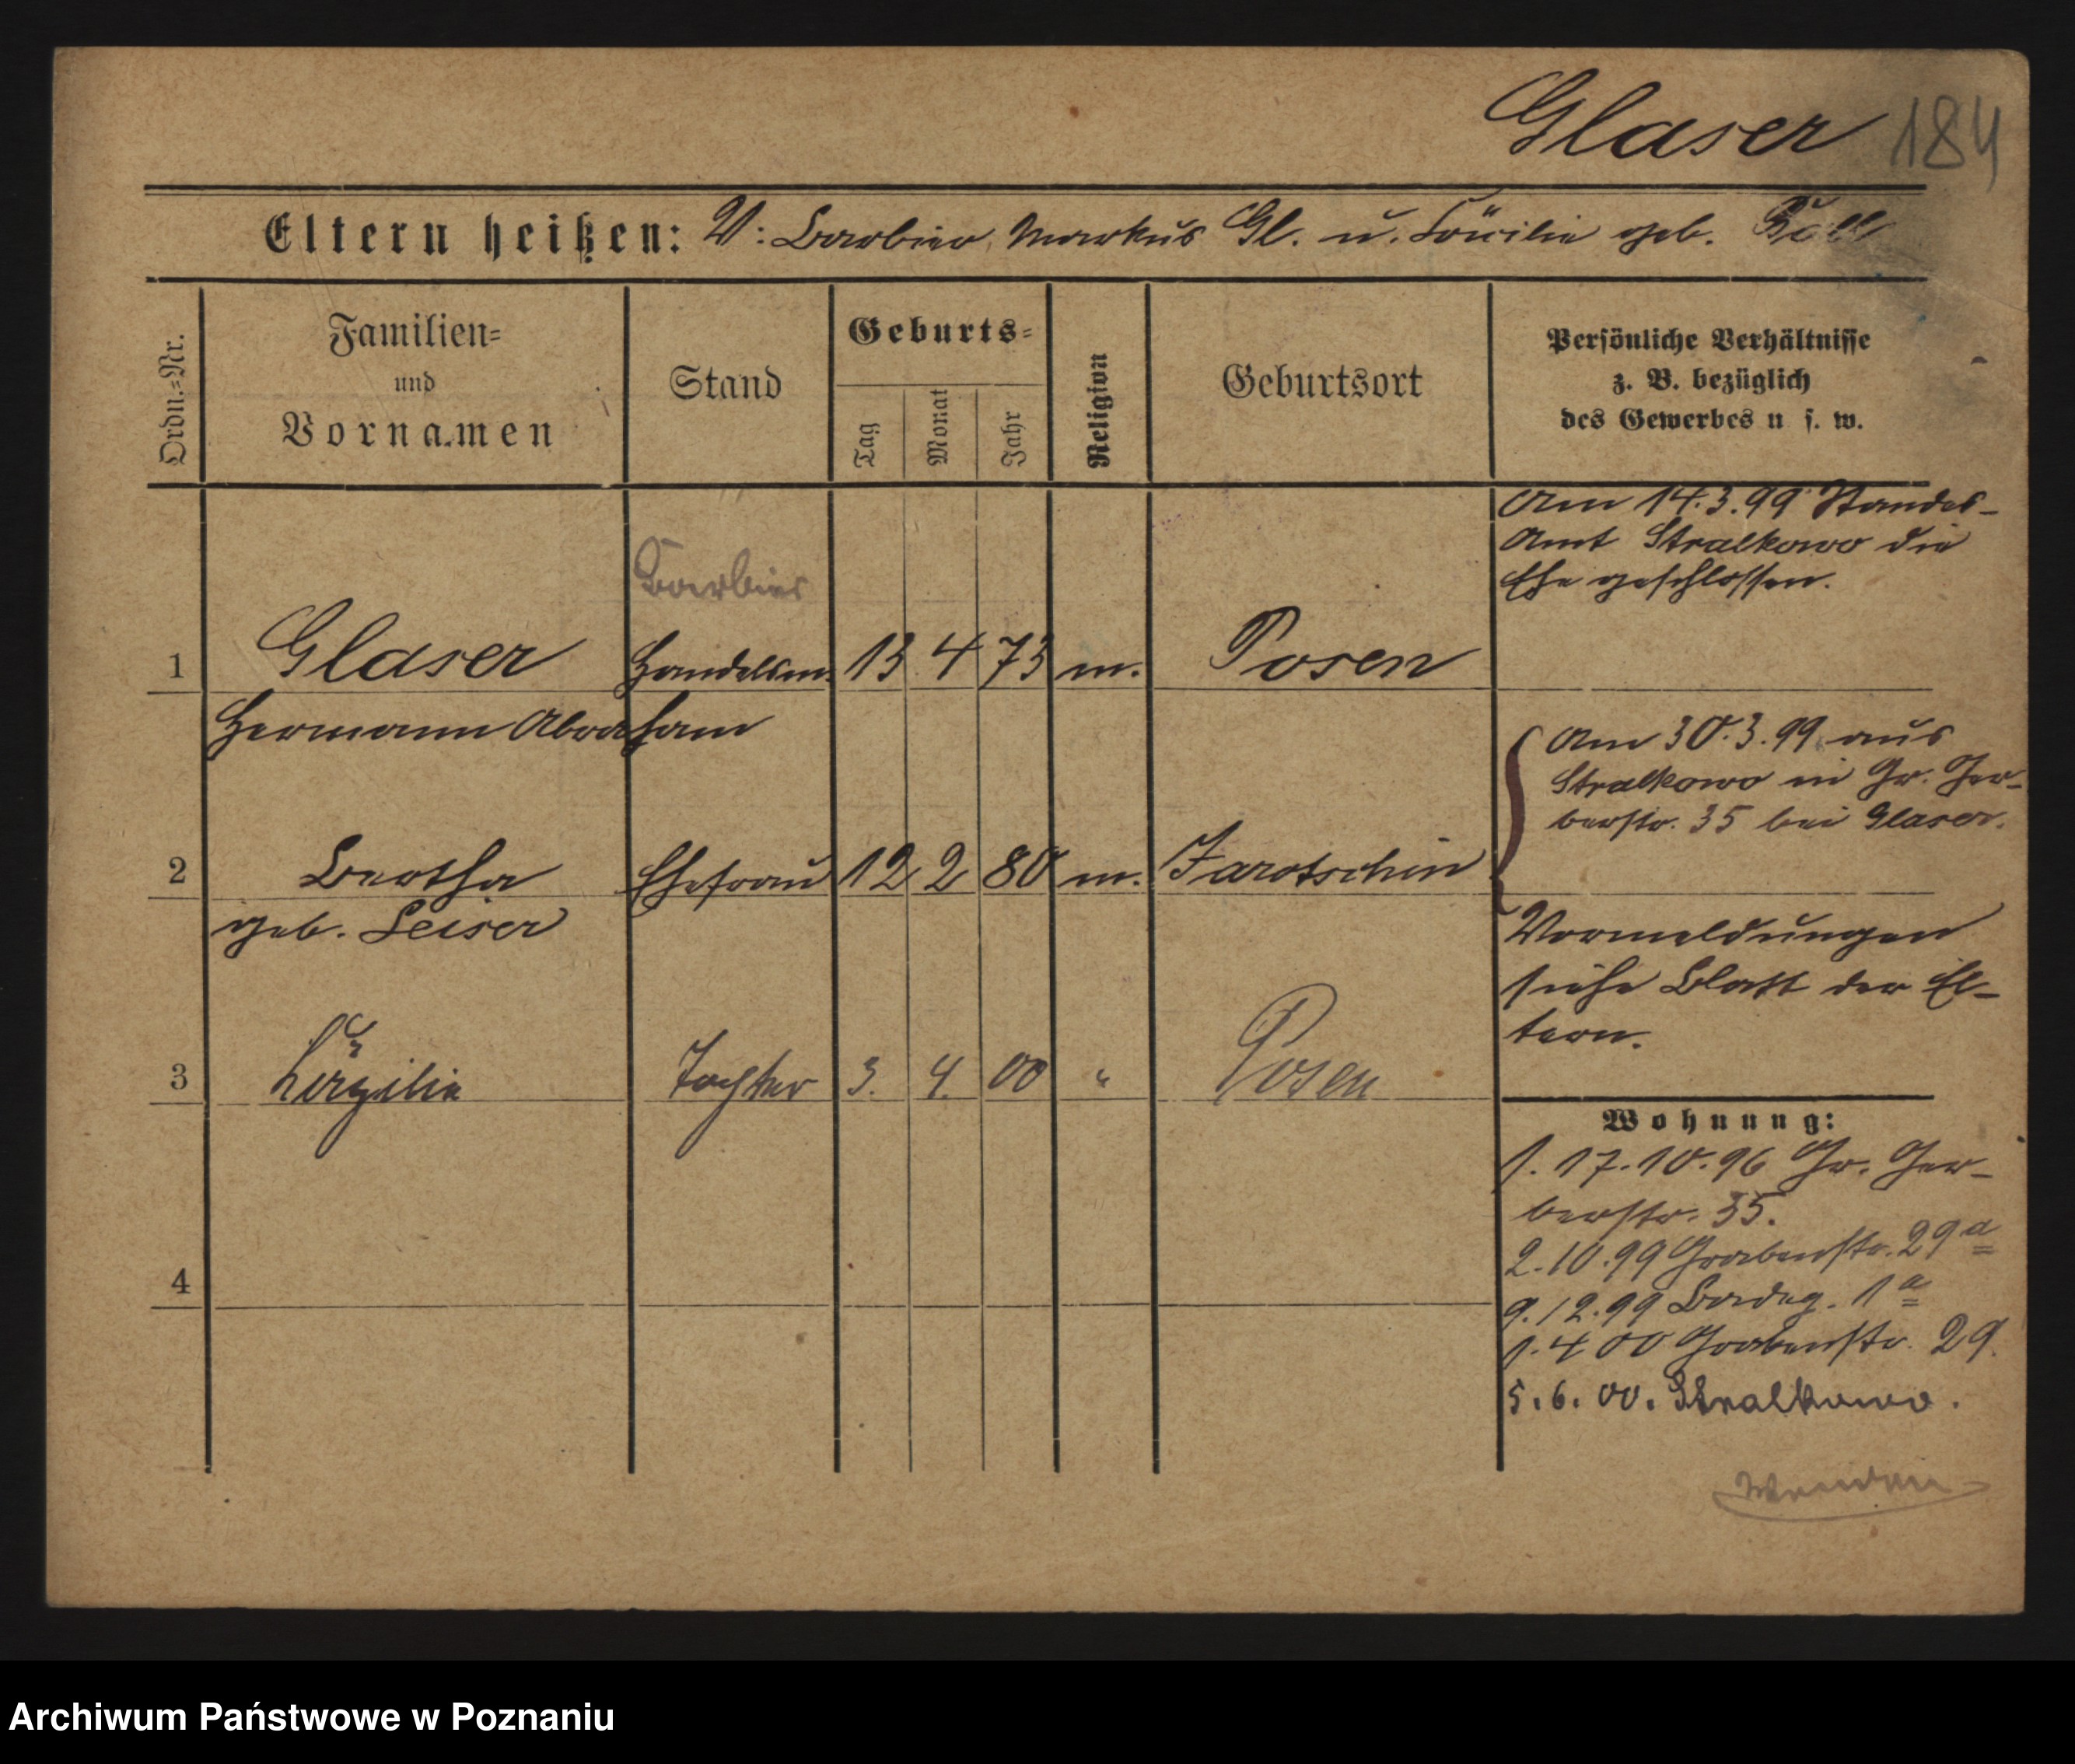 Glaser 184
Eltern heißen: V: Barbier Markus Gl. u. Cäcilie geb.
Ordn.=Nr.
Familien=
und
Vornamen
Stand
Geburts=
Tag
Monat
Jahr
Religion
Geburtsort
Persönliche Verhältnisse
z. B. bezüglich
des Gewerbes u s. w.
Am 14.3.99 Standes-
Amt Stralkowo die
Ehe geschlossen.
Barbier
1 Glaser Handelsm. 13 4 73 m. Posen
Hermann Abraham
Am 30.3.99 aus
Stralkowo in Gr. Ger-
berstr. 35 bei Glaser.
2 Bertha Ehefrau 12 2 80 m. Jarotschin
geb. Leiser
Vormeldungen
siehe Blatt der El-
tern.
3 Tochter 3. 4. 00 " Posen
4
Wohnung:
1. 17.10.96 Gr. Ger-
berstr. 35.
2.10.99 Grabenstr. 29a
9.12.99 1a
1.4 00 Grabenstr. 29.
5.6.00. Stralkowo.
Wenden
Archiwum Państwowe w Poznaniu